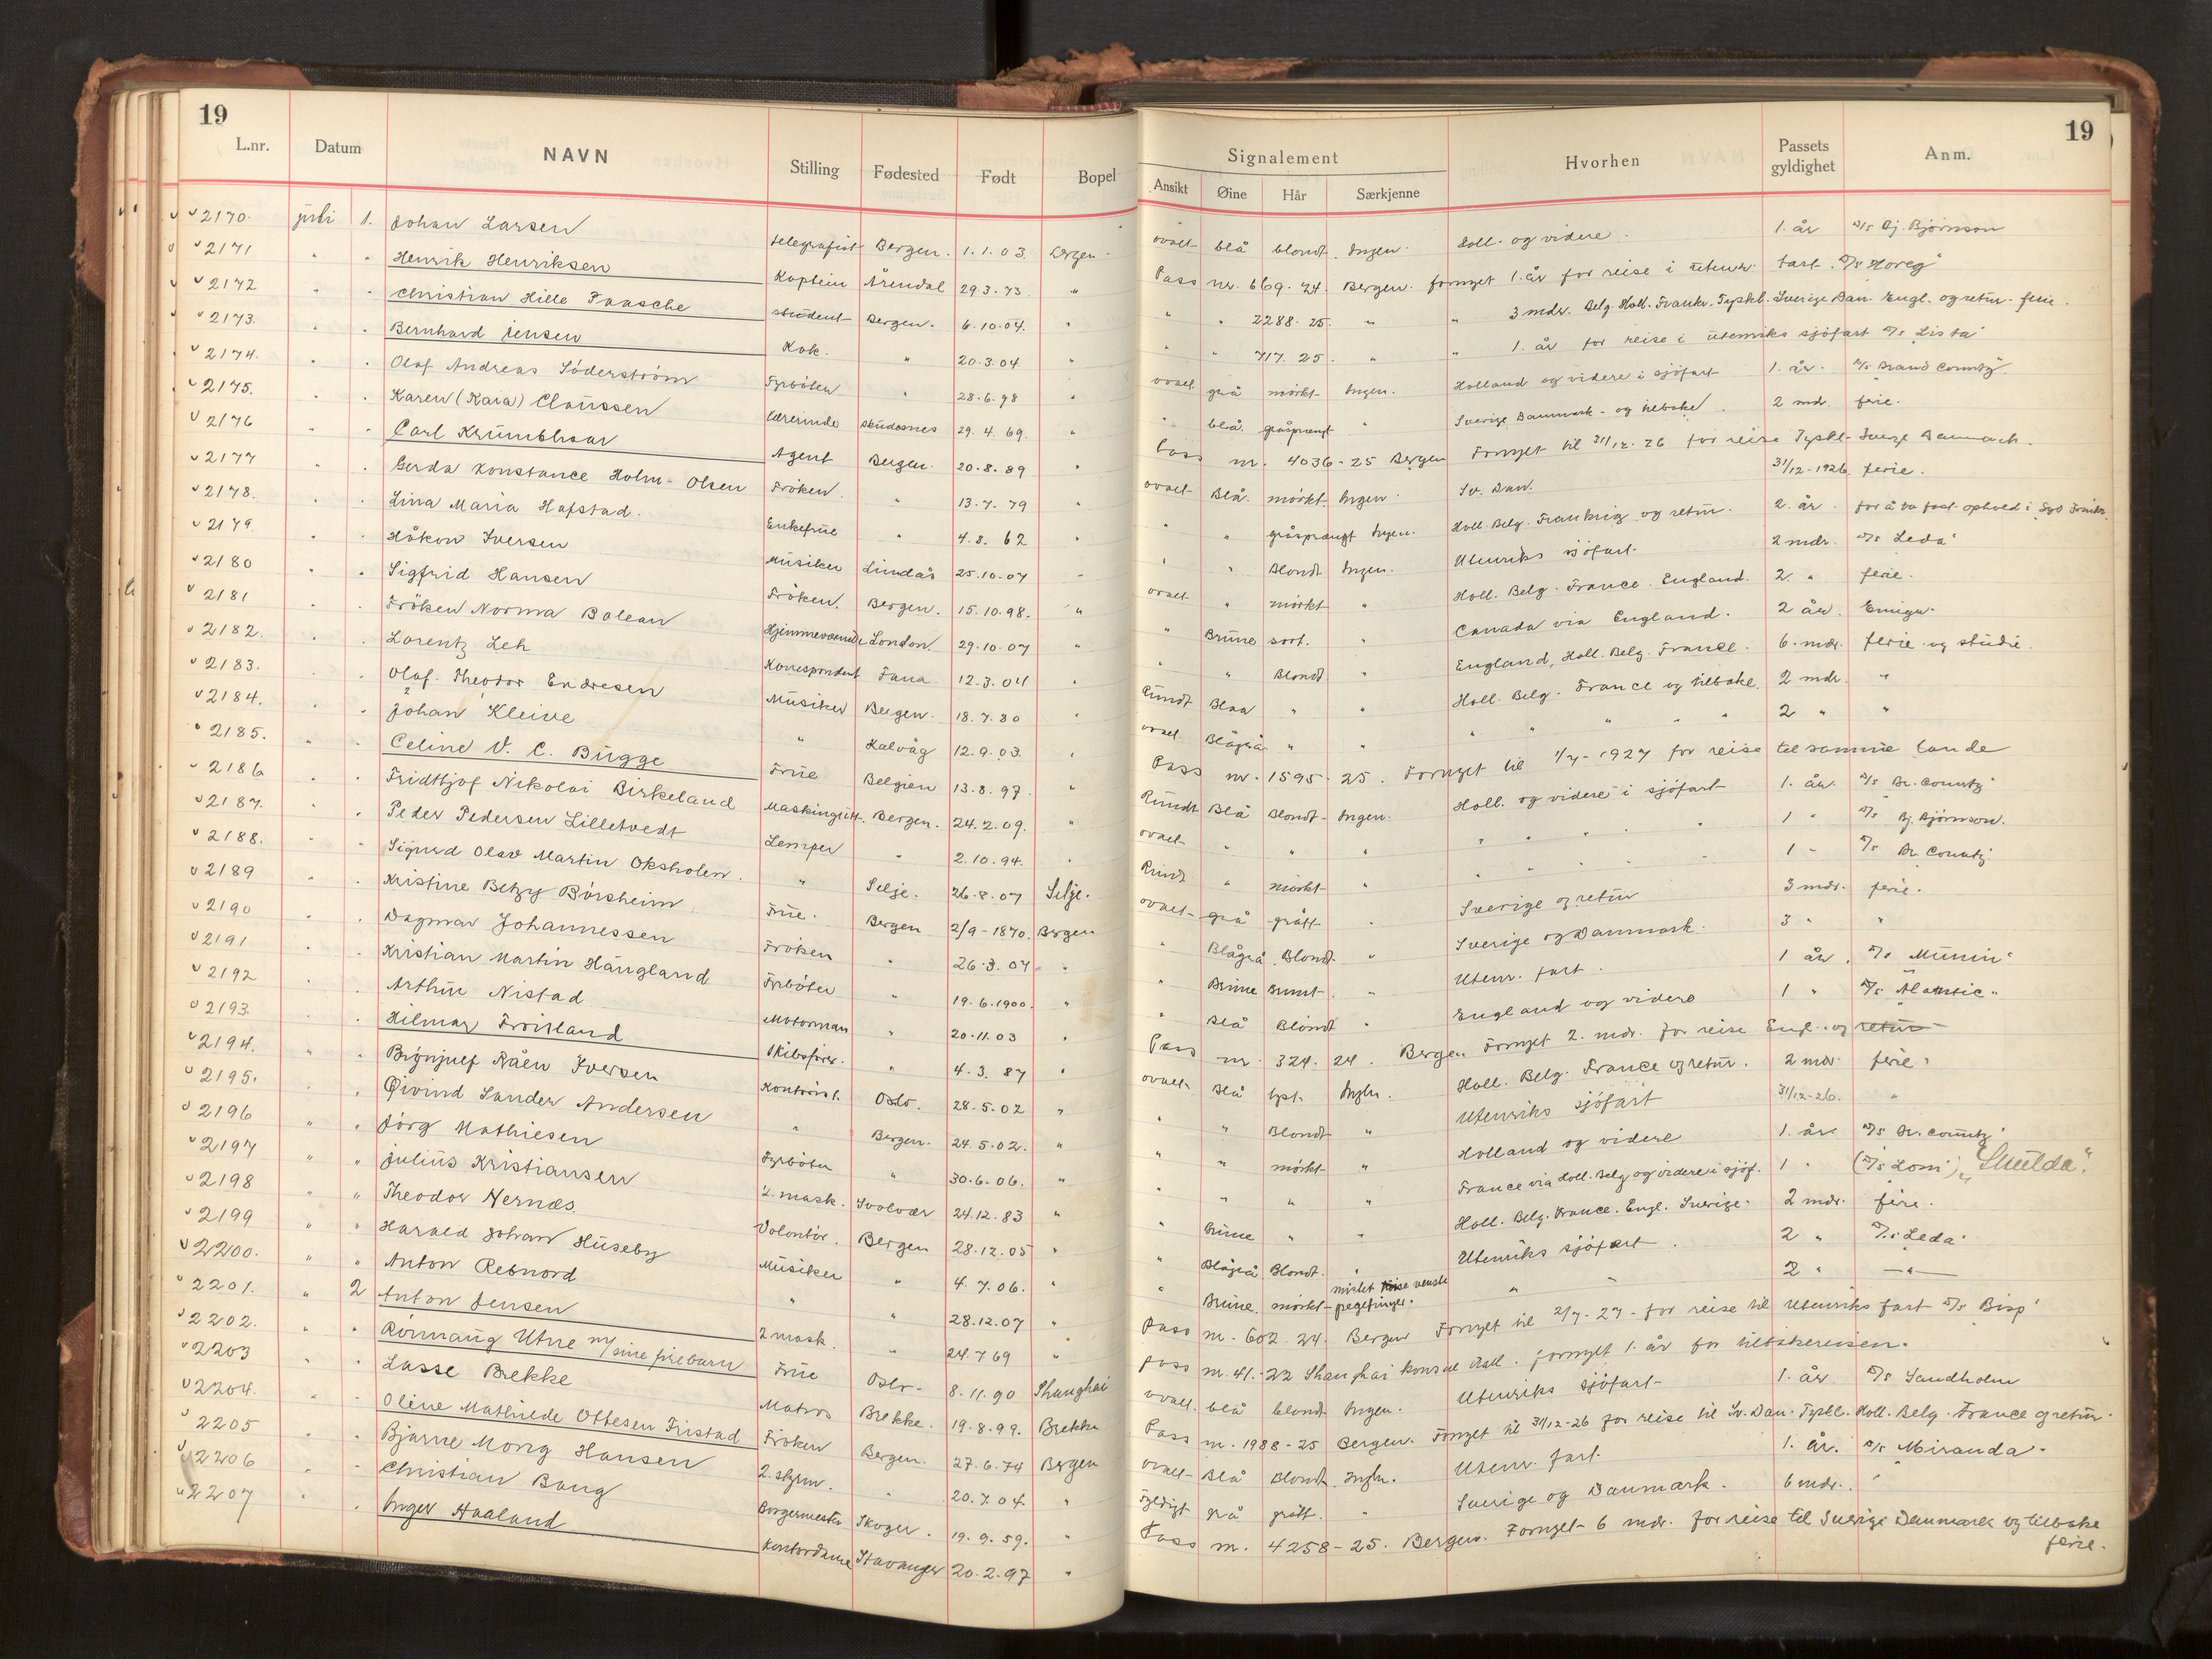 19
L.nr. Datum NAVN Stilling Fødested Født Bopel
19
Signalement Hvorhen Passets gyldighet Anm.
Ansikt Øine Hår Særkjenne
2170. juli 1. Johan Larsen telegrafist Bergen. 1.1.03. Bergen ovalt blå blondt. Ingen. Holl. og videre. 1. år D/S Bj. Bjørnson
2171 " " Henrik Henriksen Kaptein Arendal 29.3.73. " Pass nr. 669-24. Bergen. fornyet 1. år for reise i utenr. fart. D/S Horeg"
2172 " " Christian Hille Paasche student Bergen. 6.10.04. " " " 2288-25. " " 3 mdr. Belg. Holl. Frankr. Tyskl. Sverige Dan. Engl. og retur. ferie.
2173. " " Bernhard Jensen Kok. " 20.3.04 " " " 717.25. " " 1. år for reise i utenriks sjöfart D/S Lista"
2174. " " Olaf Andreas Söderström Fyrböter " 28.6.98 " ovalt grå mörkt Ingen. Holland og videre i sjöfart 1. år. D/S Brand County"
2175. " " Karen (Kaia) Claussen Lærerinde Skudesnes 29.4.69. " " blå gråsprængt " Sverige Danmark - og tilbake. 2 mdr. ferie.
2176 " " Carl Krumbhaar Agent Bergen. 20.8.89 " Pass nr. 4036-25 Bergen Fornyet til 31/12-26 for reise Tyskl. Sverge Danmark.
2177 " " Gerda Konstance Holm-Olsen Fröken. " 13.7.79 " ovalt Blå. mörkt Ingen. Sv. Dan. 31/12-1926 ferie.
2178. " " Lina Maria Hafstad. Enkefrue " 4.8.62 " " " gråsprængt Ingen. Holl. Belg. Frankrig og retur. 2. år. for å ta fast ophold i Syd Frankr.
2179. " " Håkon Iversen Musiker Lindås 25.10.07 " " " Blondt Ingen. Utenriks sjöfart 2 mdr. D/S Leda"
2180 " " Sigfrid Hansen Fröken. Bergen. 15.10.98. " ovalt " mörkt " Holl. Belg. France. England. 2. " ferie.
2181 " " Fröken Norma Balean Hjemmeværende London. 29.10.07 " " Brune sort. " Canada via England. 2 år. Emigr.
2182. " " Lorentz Leh Korrespondent Fana 12.3.04 " " " Blondt " England, Holl. Belg. France. 6. mdr. ferie og studie.
2183. " " Olaf. Theodor Endresen Musiker Bergen. 18.7.80 " Rundt Blaa " " Holl. Belg. France og tilbake. 2 mdr. "
2184. " " Johan Kleive " Kalvåg 12.9.03. " ovalt. Blågrå " " " " " " 2 " "
2185. " " Celine V. C. Bugge Frue Belgien 13.8.97. " Pass nr. 1595-25. Fornyet til 1/7-1927 for reise til samme lande
2186 " " Fridtjof Nikolai Birkeland Maskingutt. Bergen. 24.2.09. " Rundt Blå Blondt Ingen. Holl. og videre i sjöfart 1. år. D/S Br. County"
2187. " " Peder Pedersen Lilletvedt Lemper " 2.10.94. " ovalt " " " " " " " 1 " D/S Bj. Björnson.
2188. " " Sigurd Olav Martin Oksholen. " Selje. 26.8.07 Selje. Rundt " mörkt " " " " 1 " D/S Br. County"
2189 " " Kristine Betzy Börsheim Frue. Bergen 2/9-1870. Bergen ovalt grå grått " Sverige og retur 3 mdr. ferie.
2190 " " Dagmar Johannessen Fröken " 26.3.04 " " Blågrå. Blondt " Sverige og Danmark. 3 " "
2191 " Kristian Martin Haugland Fyrböter " 19.6.1900. " " Brune Brunt. " Utenr. fart. 1 år. D/S Munin"
2192 " " Arthur Nistad Motorman " 20.11.03 " " Blå Blondt " England og videre 1 " D/S Atlantic"
2193. " " Hilmar Froisland Skibsförer. " 4.3.87 " Pass nr. 324. 24. Bergen Fornyet 2. mdr. for reise Engl. og retur
2194. " " Brynjulf Råen Iversen Kontorist. Oslo. 28.5.02 " ovalt Blå lyst. Ingen. Holl. Belg. France og retur. 2 mdr. ferie.
2195. " " Øivind Sander Andersen " Bergen. 24.5.02. " " " Blondt " Utenriks sjöfart 31/12-26. "
2196 " " Jörg Mathiesen Fyrböter " 30.6.06. " " " mörkt " Holland og videre 1. år. D/S Br. County"
2197 " " Julius Kristiansen 2. mask. Svolvær 24.12.83 " " " " " France via Holl. Belg og videre i sjöf. 1 " (D/S Loni) "Skulda".
2198 " " Theodor Nernæs. Volontör. Bergen 28.12.05 " " Brune " " Holl. Belg. France. Engl. Sverige. 2 mdr. ferie.
2199 " " Harald Johan Huseby Musiker " 4.7.06. " " Blågrå Blondt. " Utenriks sjöfart. 2 " D/S Leda"
2200. " " Anton Rebnord " " 28.12.07 " " Brune. mörkt mistet venstre pegefinger. " " 2 " —"—
2201. " 2 Anton Jensen 2 mask. " 24.7 69 " Pass nr. 602. 24. Bergen Fornyet til 2/7-27- for reise til Utenriks fart D/S Bisp"
2202. " " Rönnaug Utne m/ sine fire barn Frue Oslo- 8.11.90 Shanghai pass nr. 41.-22 Shanghai fornyet 1. år for tilbakereisen.
2203 " " Lasse Brekke Matros Brekke. 19.8.99. Brekke ovalt. blå blondt Ingen. Utenriks sjöfart 1. år D/S Sandholm
2204. " " Oline Mathilde Ottesen Fristad Fröken Bergen. 27.6.74 Bergen Pass nr. 1988-25 Bergen. Fornyet til 31/12-26 for reise til Sv. Dan. Tyskl. Holl. Belg. France og retur.
2205 " " Bjarne Mong Hansen 2. styrm. " 20.7.04. " ovalt Blå Blondt. Ingen. Utenr. fart. 1. år. D/S Miranda"
2206 " " Christian Bang Borgermester Skoger. 19.9.59. " Fyldigt grå grått. " Sverige og Danmark. 6 mdr. "
2207 " " Inger Haaland Kontordame Stavanger 20.2.97 " Pass nr. 4258-25. Bergen. Fornyet 6 mdr. for reise til Sverige Danmark og tilbake
ferie.